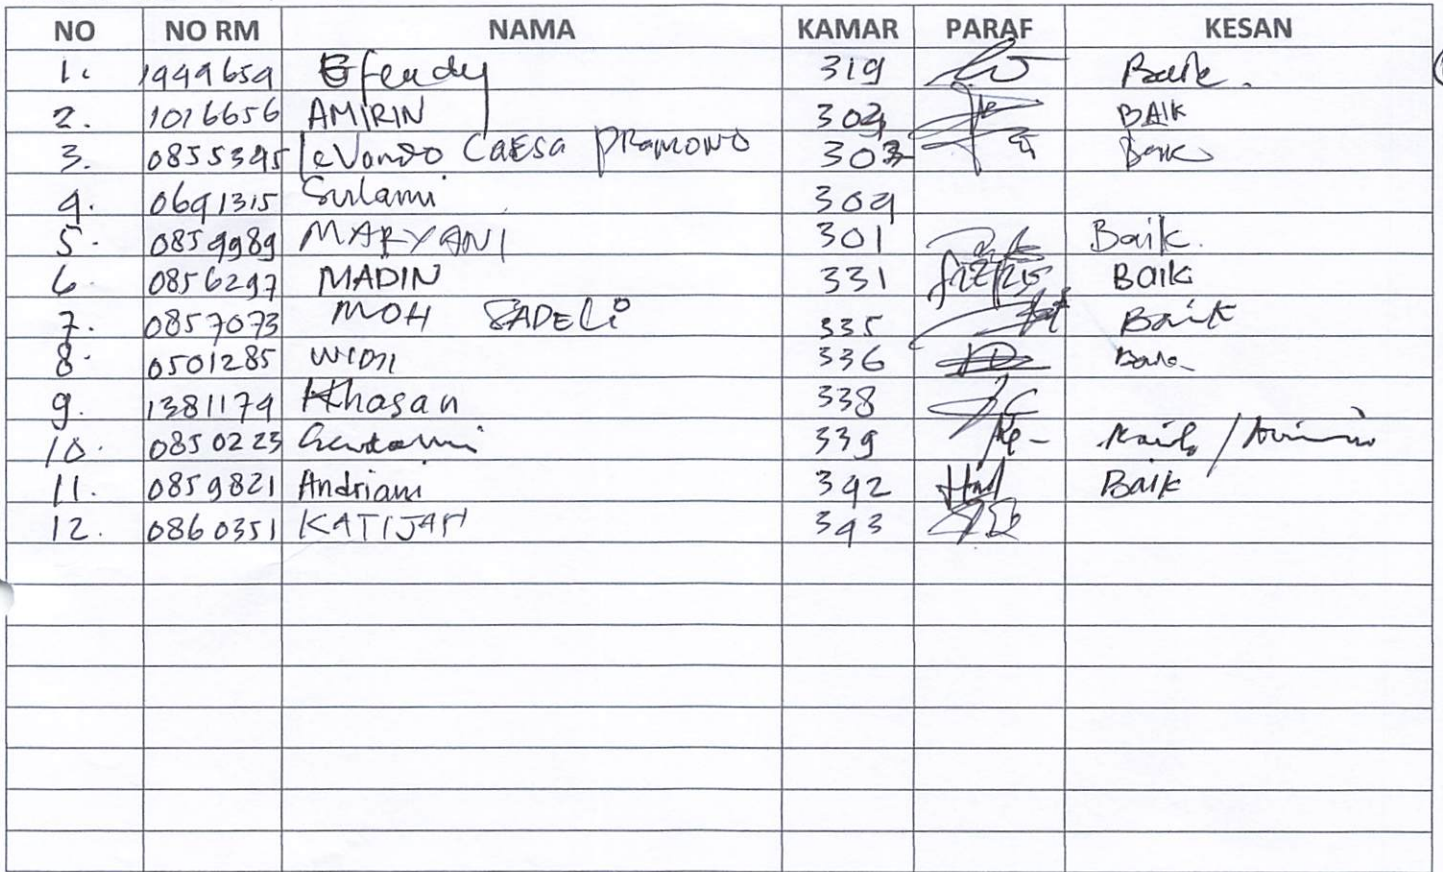 NO NO RM NAMA KAMAR PARAF KESAN
1. 1444654 Efendy 319 Baik.
2. 1016656 AMIRIN 304 BAIK
3. 0855345 LeVondo CaESa PRAMONO 303 Baik
4. 0641315 Sulami 304
5. 0854989 MARYANI 301 Baik.
6. 0856297 MADIN 331 BAIK
7. 0857073 MOH SADELi 335 Baik
8. 0501285 WIDJI 336 Baik
9. 1381174 Khasan 338
10. 0850223 339
11. 0859821 Andriani 342 Baik
12. 0860351 KATIJAH 343